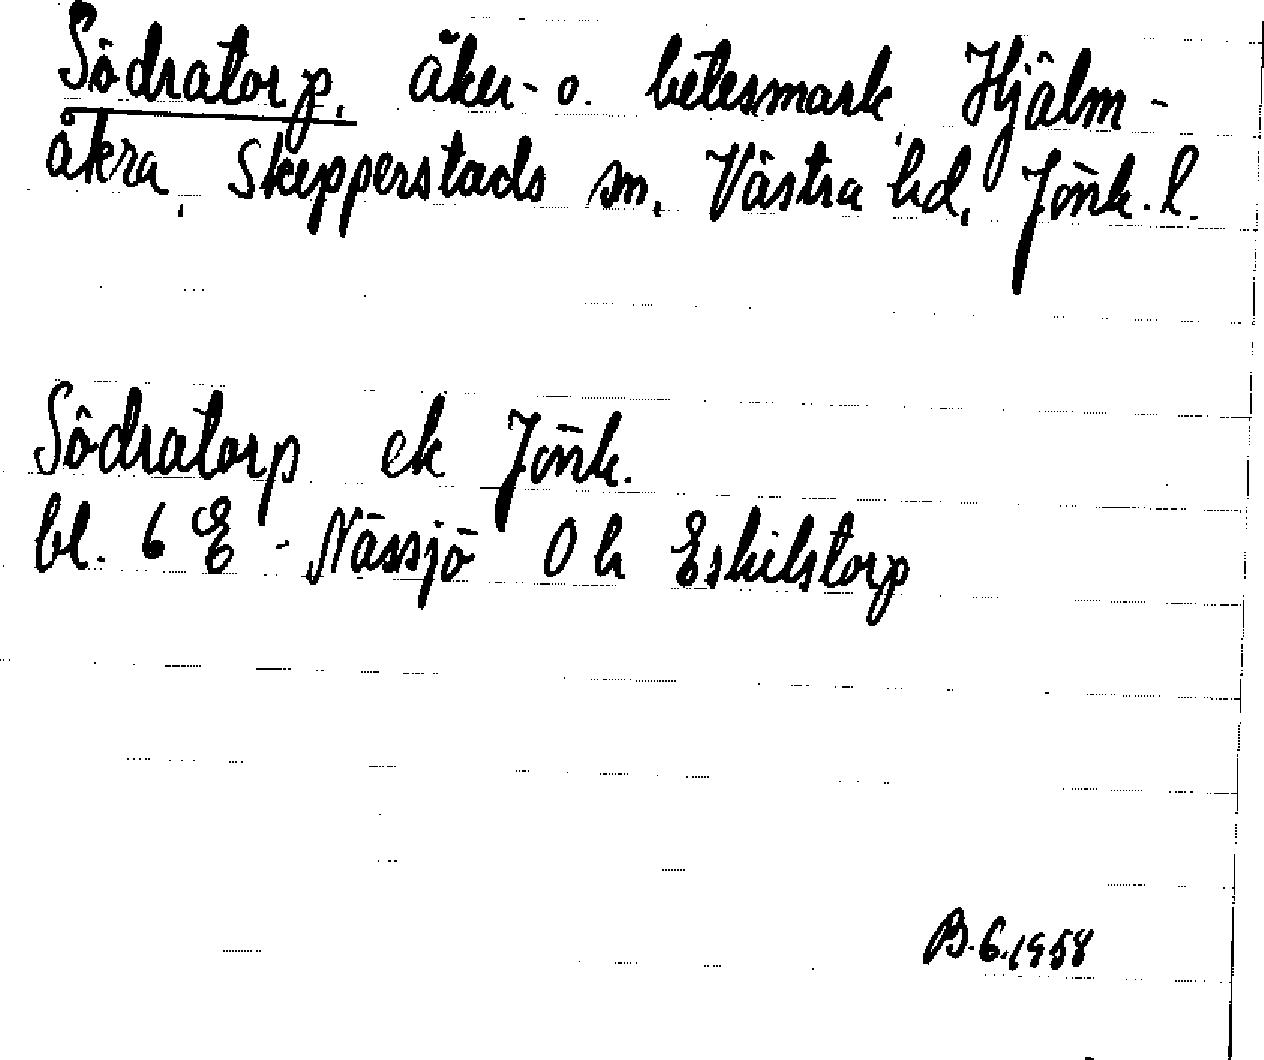 Södratorp, åker- o. betesmark, Hjälm-
åkra, Skepperstads sn, Västra hd, Jönk. l.
Södratorp ek Jönk.
bl. 6 E - Nässjö 0 h Eskilstorp
B.6.1958